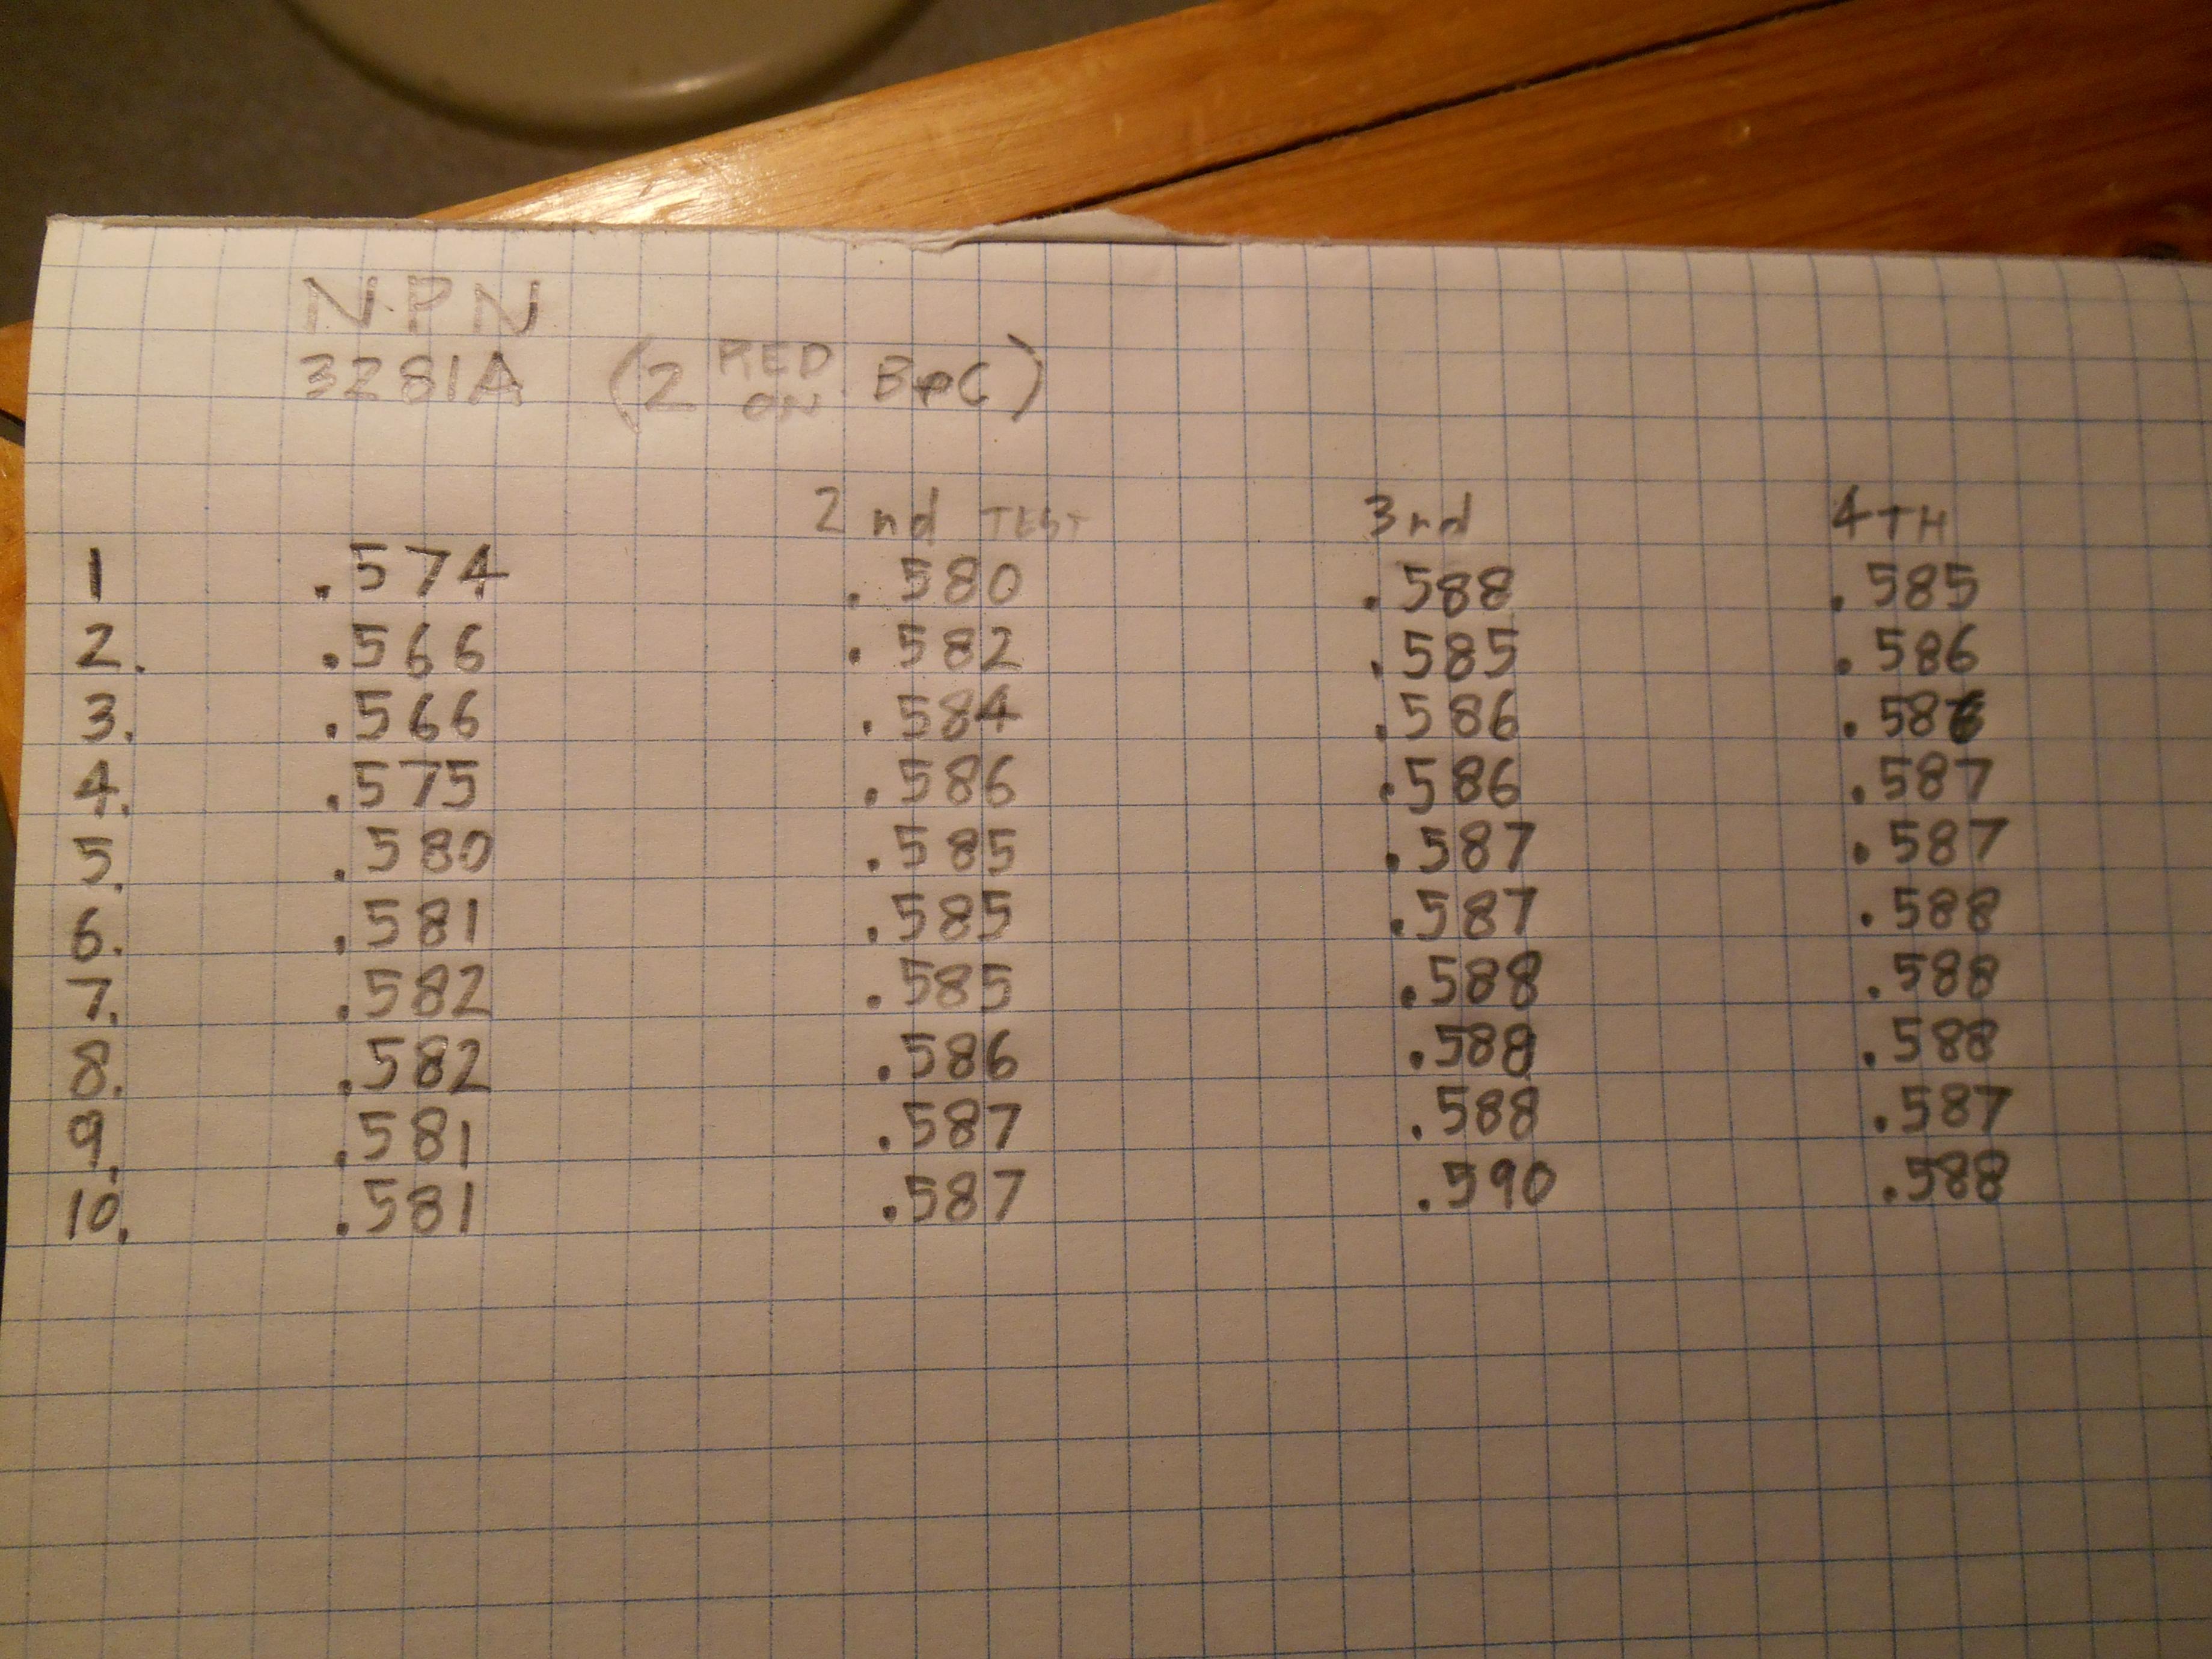 NPN
3281A (2 RED ON B+C)
2nd TEST 3rd 4TH
1 .574 .580 .588 .585
2. .566 .582 .585 .586
3. .566 .584 .586 .586
4. .575 .586 .586 .587
5. .580 .585 .587 .587
6. .581 .585 .587 .588
7. .582 .585 .588 .588
8. .582 .586 .588 .588
9. .581 .587 .588 .587
10. .581 .587 .590 .588